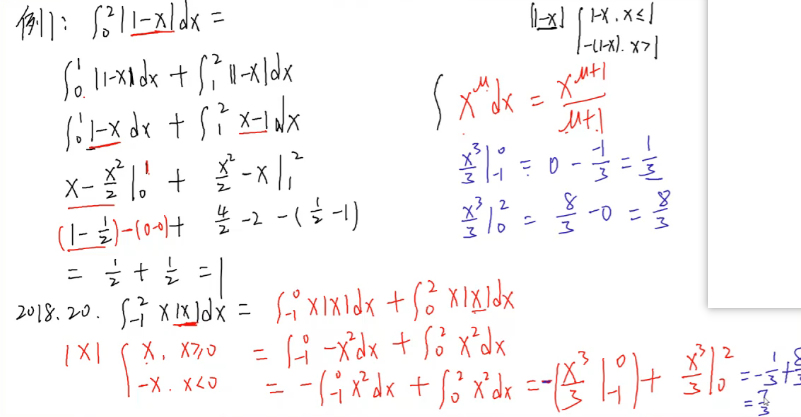 例1: ∫₀²|1-x|dx =
∫₀¹|1-x|dx + ∫₁²|1-x|dx
∫₀¹ 1-x dx + ∫₁² x-1 dx
x - x²/2 |₀¹ + x²/2 - x |₁²
(1 - 1/2) - (0-0) + 4/2 - 2 - (1/2 - 1)
= 1/2 + 1/2 = 1
|1-x| { 1-x, x≤1
-(1-x), x>1
∫ x^μ dx = x^(μ+1)/(μ+1)
x³/3 |₋₁⁰ = 0 - -1/3 = 1/3
x³/3 |₀² = 8/3 - 0 = 8/3
2018.20. ∫₋₁² x|x|dx = ∫₋₁⁰ x|x|dx + ∫₀² x|x|dx
|x| { x, x≥0
-x, x<0
= ∫₋₁⁰ -x²dx + ∫₀² x²dx
= -∫₋₁⁰ x²dx + ∫₀² x²dx = -(x³/3 |₋₁⁰) + x³/3 |₀² = -1/3 + 8/3
= 7/3